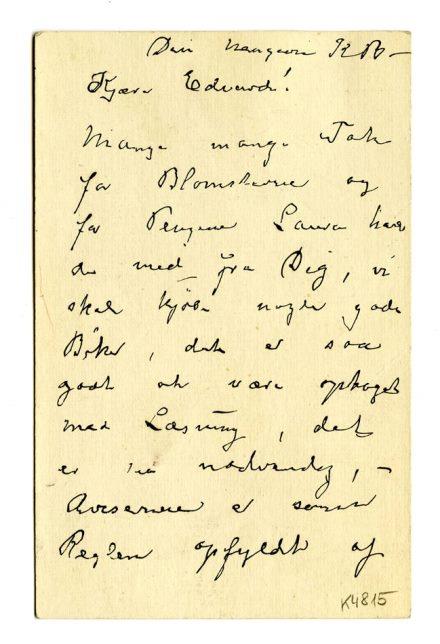 Din hengivne K B –
Kjære Edvard!
Mange mange Tak
for Blomsterne og
for Pengene Laura har
de med fra Dig, vi
skal kjøbe nogle gode
Bøker, det er saa
godt at være optaget
med Læsning, det
er saa nødvendig, –
Aviserne er som
Reglen opfyldt af
K4815